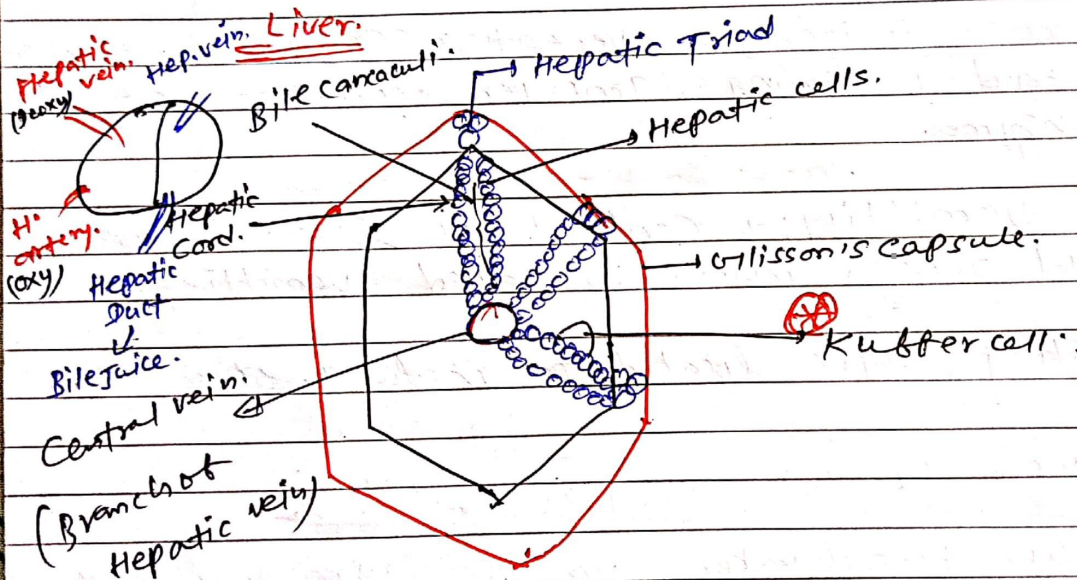 Liver.
Hepatic
vein.
(deoxy)
Hep. vein.
Bile canaculi.
Hepatic Triad
Hepatic cells.
H.
artery.
(oxy)
Hepatic
Cord.
Hepatic
Duct
↓
Bile Juice.
Glisson's capsule.
Kuffer cell.
Central vein.
(Branch of
Hepatic vein)